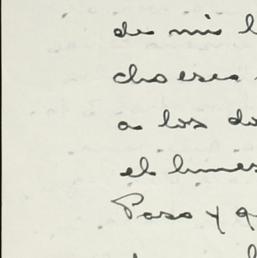 de mis l
cho eses
a los do
el lunes
Paso y q